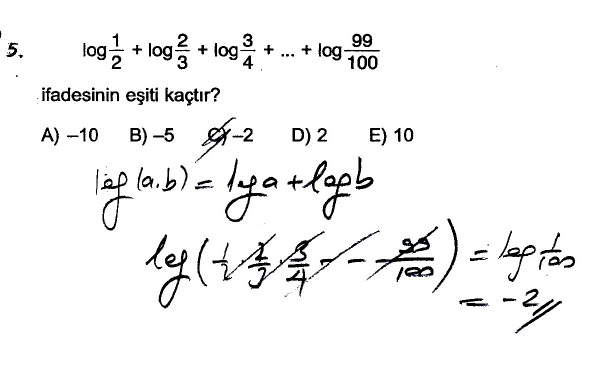 5. log 1/2 + log 2/3 + log 3/4 + ... + log 99/100
ifadesinin eşiti kaçtır?
A) –10 B) –5 C) –2 D) 2 E) 10
log (a.b) = log a + log b
log ( 1/2 . 2/3 . 3/4 - - - 99/100 ) = log 1/100
= -2